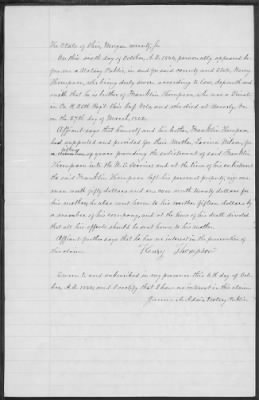 The State of Ohio, Morgan County, ss
On this sixth day of October, A.D. 1884, personally appeared be-
fore me a Notary Public, in and for said County and State, Henry
Thompson, who being duly sworn, according to law, deposeth and
saith that he is brother of Franklin Thompson, who was a Private
in Co. Regt. Ohio Inft. Vols, and who died at
on the 27th day of March, 1862.
Affiant says that himself and his brother, Franklin Thompson,
had supported and provided for their Mother, for
a number of years preceding the enlistment of said Franklin
Thompson into the U.S. Service and at the time of his enlistment
the said Franklin Thompson left his personal property,
worth fifty dollars and one worth twenty dollars for
his mother, he also sent home to his mother fifteen dollars by
a member of his company, and at the time of his death directed
that all his effects should be sent home to his mother.
Affiant further says that he has no interest in the prosecution of
this claim.
Henry Thompson
Sworn to and subscribed in my presence this 6th day of Oct-
ober A.D. 1884 and I certify that I have no interest in this claim
Notary Public